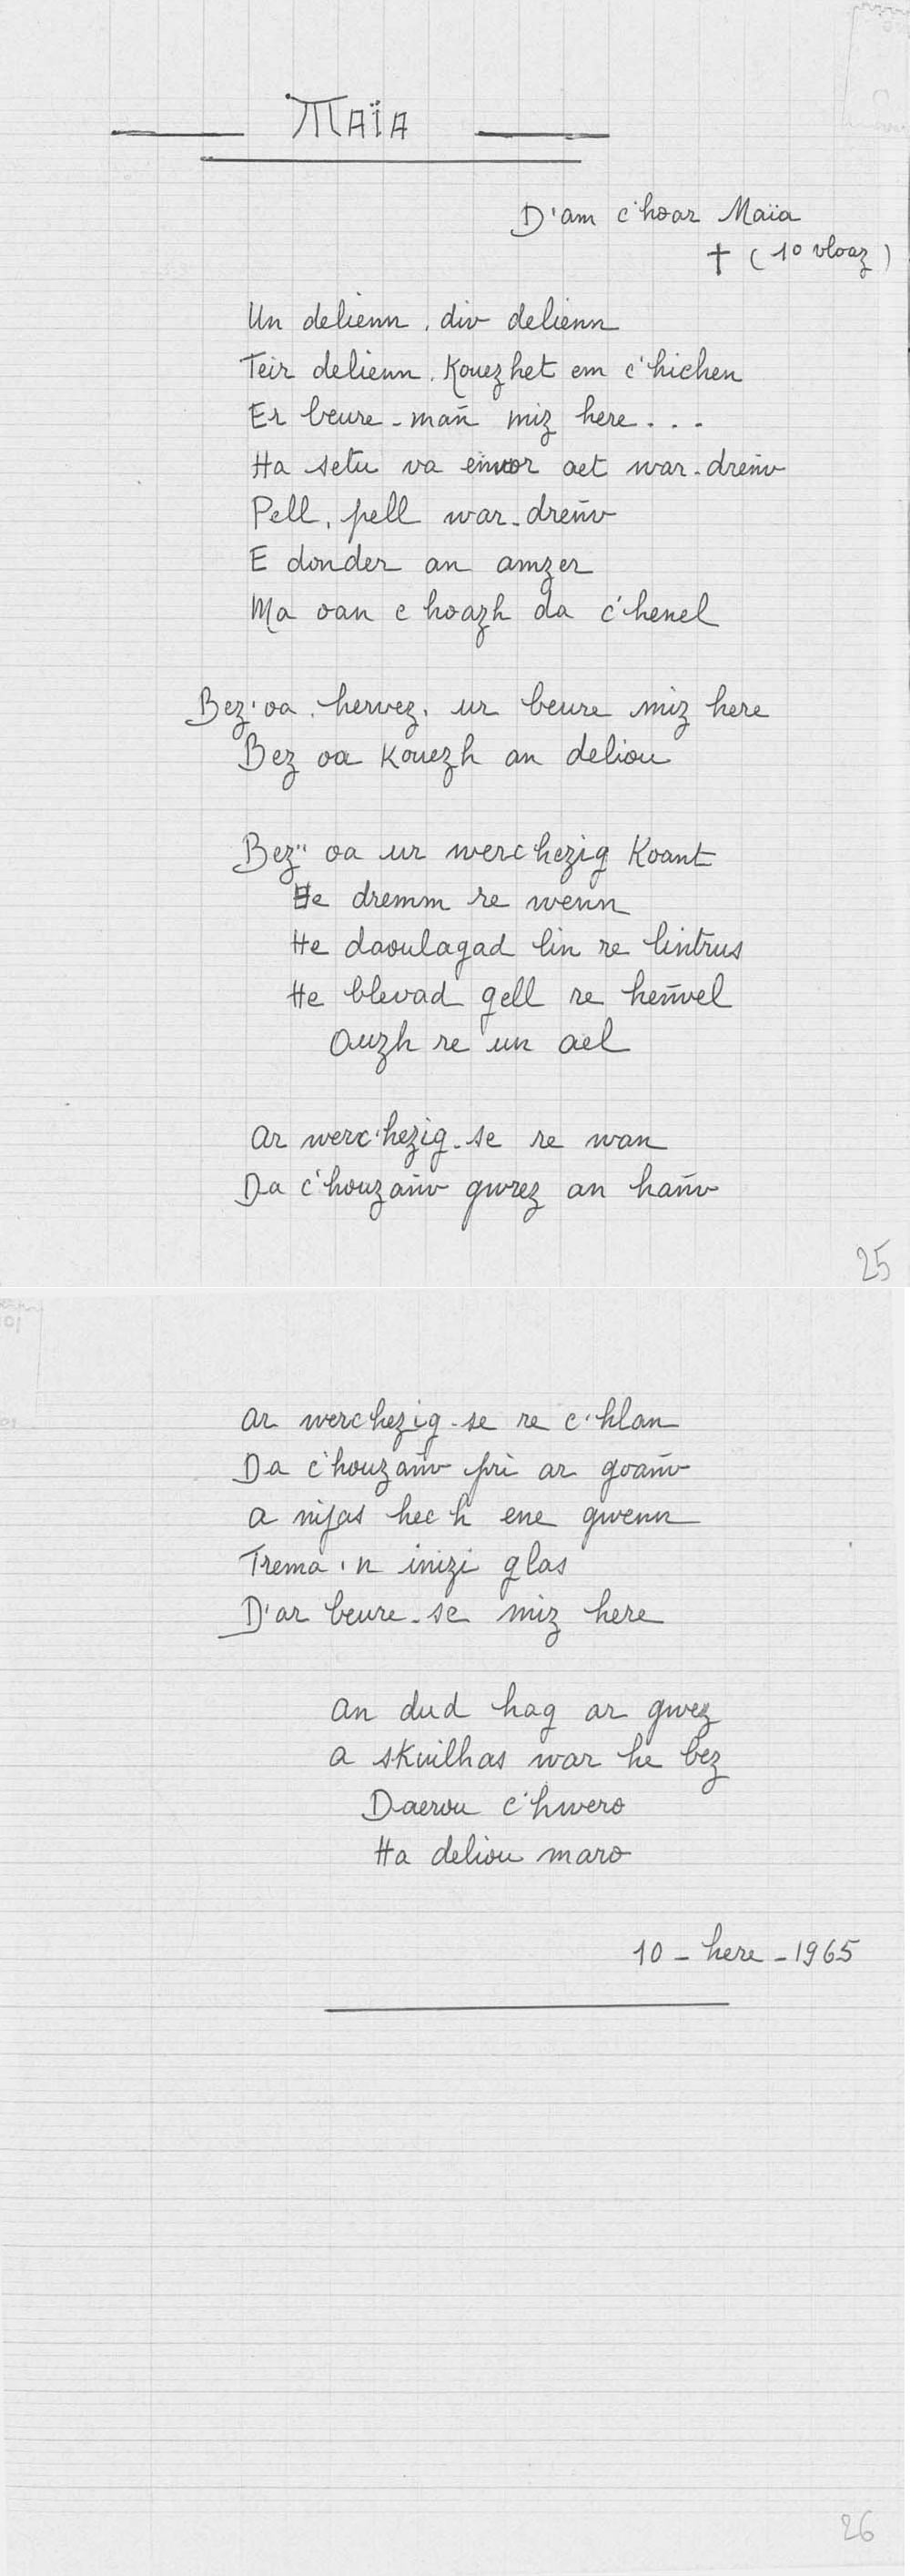 MAÏA
D'am c'hoar Maïa
† (10 vloaz)
Un delienn, div delienn
Teir delienn, Kouezhet em c'hichen
Er beure-mañ miz here...
Ha setu va envor aet war-dreñv
Pell, pell war-dreñv
E donder an amzer
Ma oan c'hoazh da c'henel
Bez' oa, hervez, ur beure miz here
Bez oa Kouezh an deliou
Bez" oa ur werc'hezig Koant
He dremm re wenn
He daoulagad lin re lintrus
He blevad gell re heñvel
Ouzh re un ael
Ar werc'hezig-se re wan
Da c'houzañv gwrez an hañv
25
Ar werc'hezig-se re c'hlan
Da c'houzañv pri ar goañv
A nijas hec'h ene gwenn
Trema 'n inizi glas
D'ar beure-se miz here
An dud hag ar gwez
A skuilhas war he bez
Daerou c'hwero
Ha deliou maro
10-here-1965
26